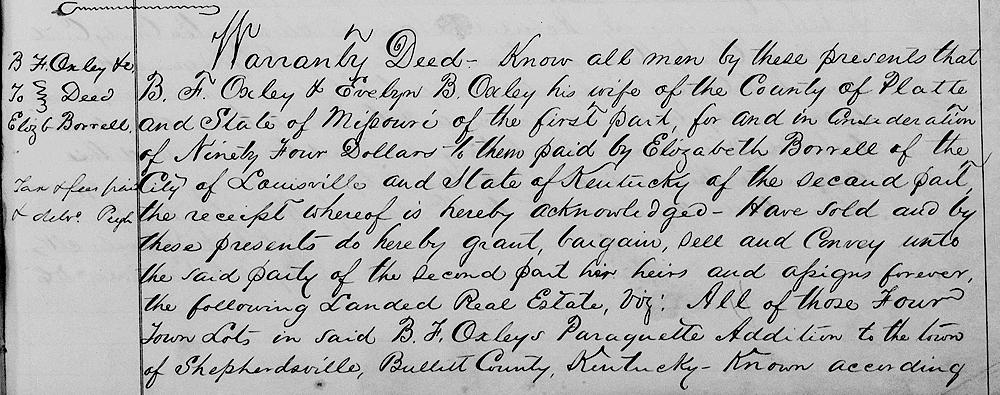 B F. Oxley &c
To } Deed
Elizb Borrell,
Tax & fees paid
& delvd
Warranty Deed - Know all men by these presents that
B. F. Oxley & Evelyn B. Oxley his wife of the County of Platte
and State of Missouri of the first part, for and in Consideration
of Ninety Four Dollars to them paid by Elizabeth Borrell of the
City of Louisville and State of Kentucky of the second part,
the receipt whereof is hereby acknowledged - Have sold and by
these presents do hereby grant, bargain, sell and Convey unto
the said party of the second part her heirs and assigns forever,
the following Landed Real Estate, Viz: All of those Four
Town Lots in said B. F. Oxleys Paraquette Addition to the town
of Shepherdsville, Bullitt County, Kentucky - Known according